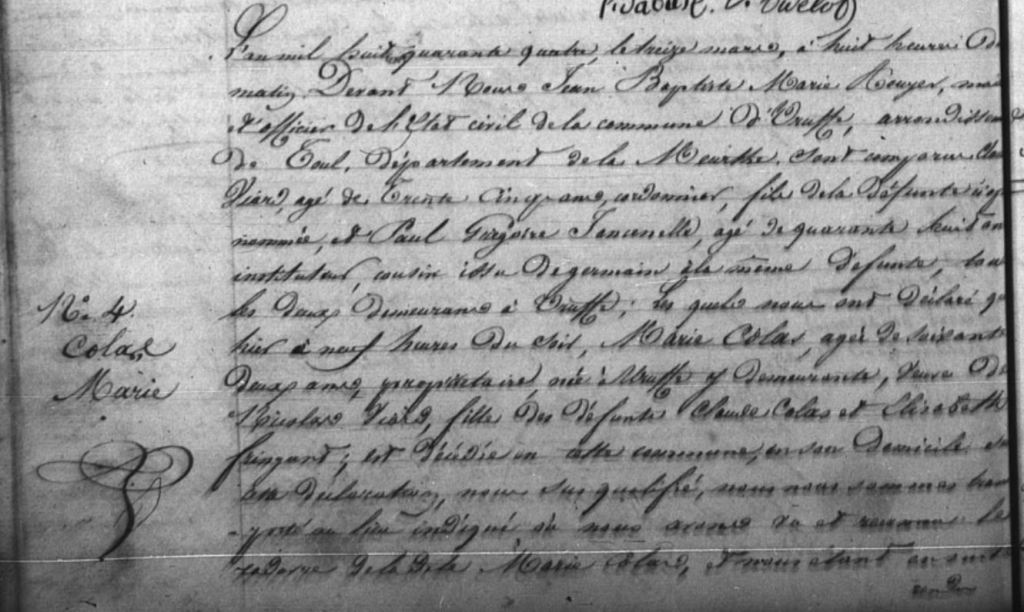 L'an mil huit quarante quatre, le treize mars, à huit heures du
matin, Devant Nous Jean Baptiste Marie Rouyer,
d'officier de l'Etat civil de la commune d'Uruffe, arrondissem
de Toul, Département de la Meurthe, sont comparus
Viard, agé de Trente cinq ans, cordonnier, fils de la défunte
nommée, et Paul Grégoire agé de quarante huit ans
instituteur, cousin issu de germain à la même défunte, tou
les deux demeurans à Uruffe; les quels nous ont déclaré q
hier à neuf heures du soir, Marie Colas, agée de soixante
deux ans, propriétaire, née à Uruffe y demeurante, veuve de
N° 4
Colas
Marie
Nicolas Viard, fille des défunts Claude Colas et Elisabeth
est décédée en cette commune, en son domicile
déclaration, nous sus qualifié, nous nous sommes trans
-porté au lieu indiqué où nous avons vu et reconnu le
cadavre de la dite Marie Colas, et nous étant